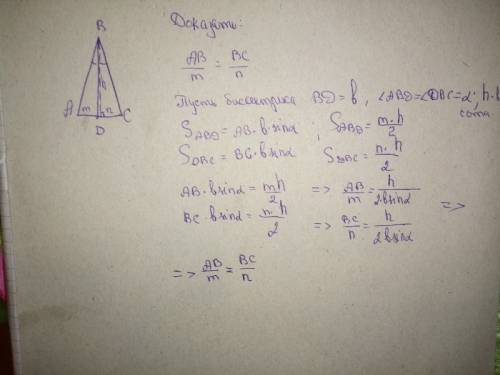 Доказать:
B
AB/m = BC/n
h
A m n C
D
Пусть биссектриса BD = b, ∠ABD = ∠DBC = α; h - в
сота
S_ABD = AB · b sinα ; S_ABD = m · h/2
S_DBC = BC · b sinα S_DBC = n · h/2
AB · b sinα = mh/2 => AB/m = h/2b sinα =>
BC · b sinα = n · h/2 => BC/n = h/2b sinα
=> AB/m = BC/n